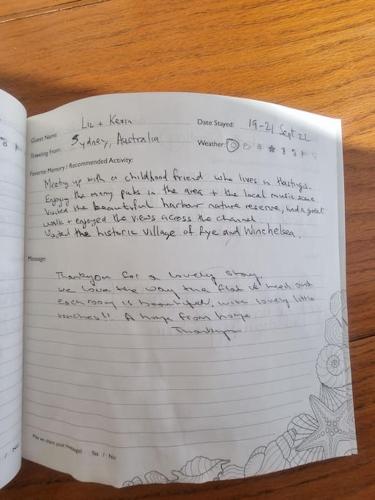 Guest Name: Liz + Kevin
Date Stayed: 19-21 Sept 22
Travelling from: Sydney, Australia
Weather:
Favourite Memory / Recommended Activity:
Meeting up with a childhood friend who lives in Hastings.
Enjoying the many pubs in the area + the local music scene
Visited the beautiful harbour nature reserve, had a great
walk + enjoyed the views across the channel.
Visited the historic village of Rye and Winchelsea.
Message:
Thankyou for a lovely stay.
We love the way the flat is
each room is beautiful, with lovely little
touches!! A home from home
Thankyou
May we share your message? Yes / No